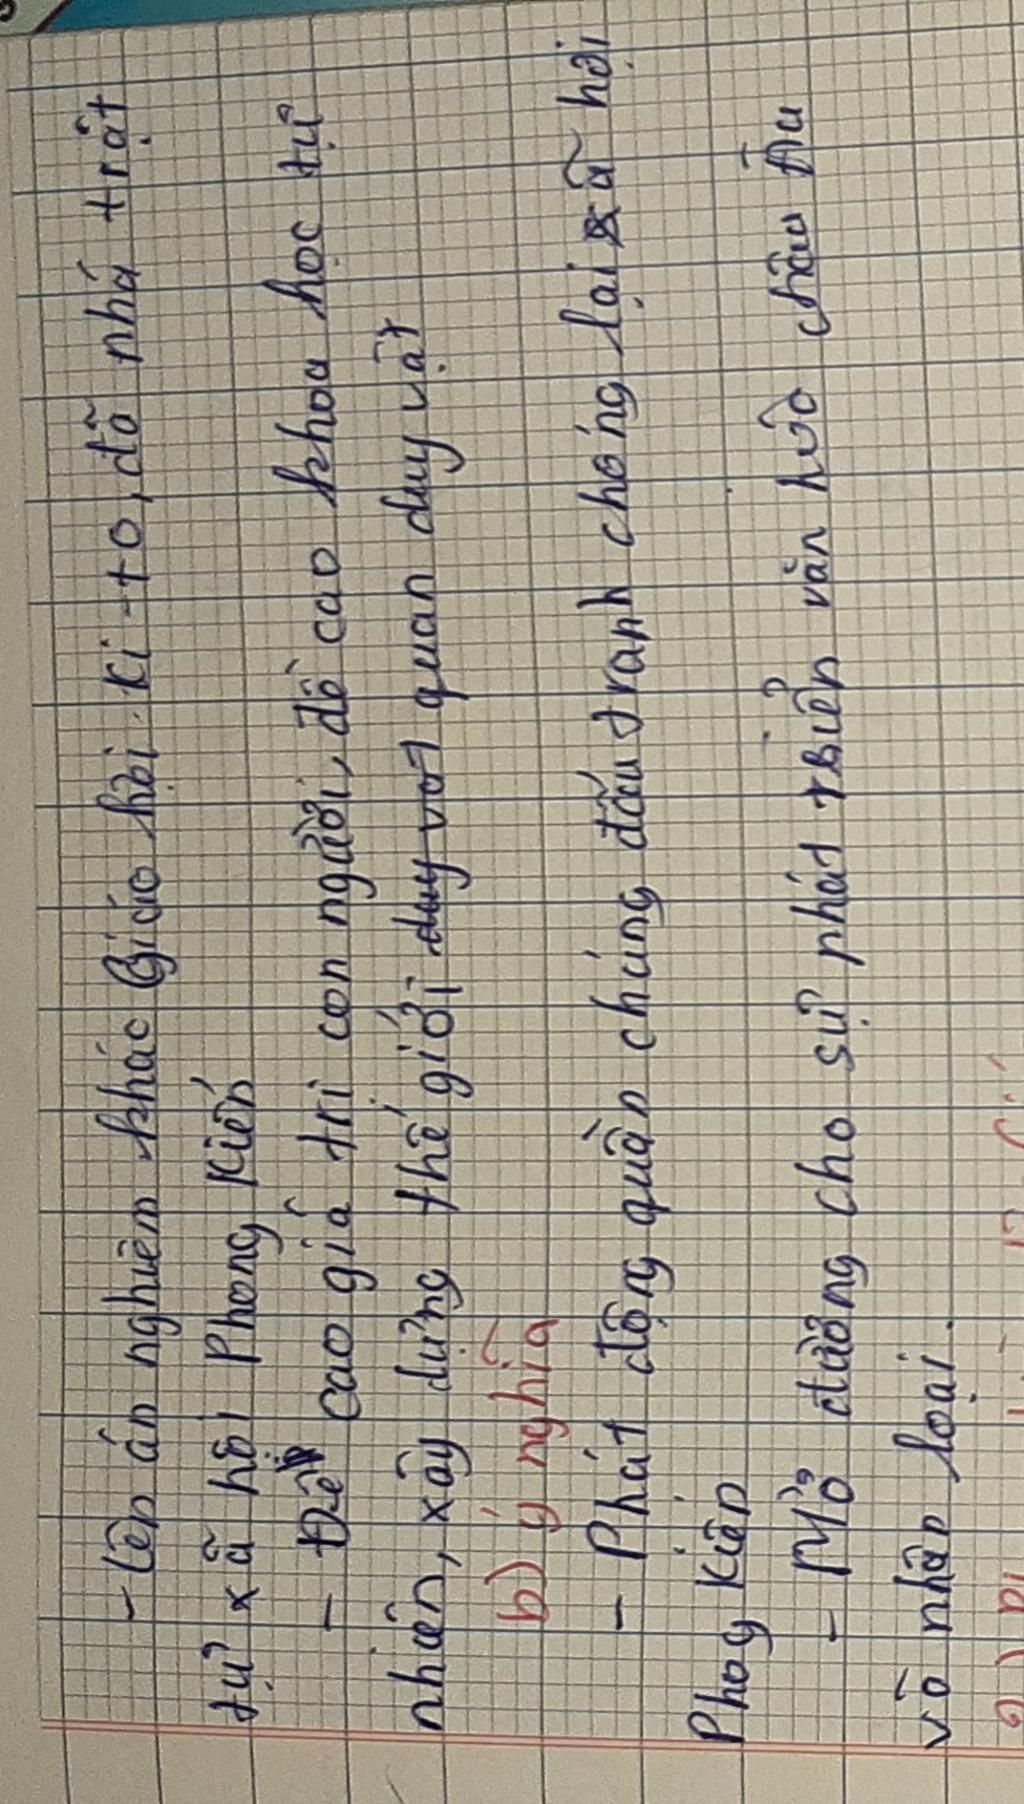 - Lên án nghiêm khác Giáo hội Ki-to, đã nhá trật
tự xã hội Phong Kiến
- Đề cao giá trị con người, đề cao khoa học tự
nhiên, xây dựng thế giới duy vat quan duy vật
b) ý nghĩa
- Phát động quần chúng đấu tranh chống lại xã hội
Phog Kiến
- Mở đường cho sự phát triển văn hóa châu Âu
vò nhân loại.